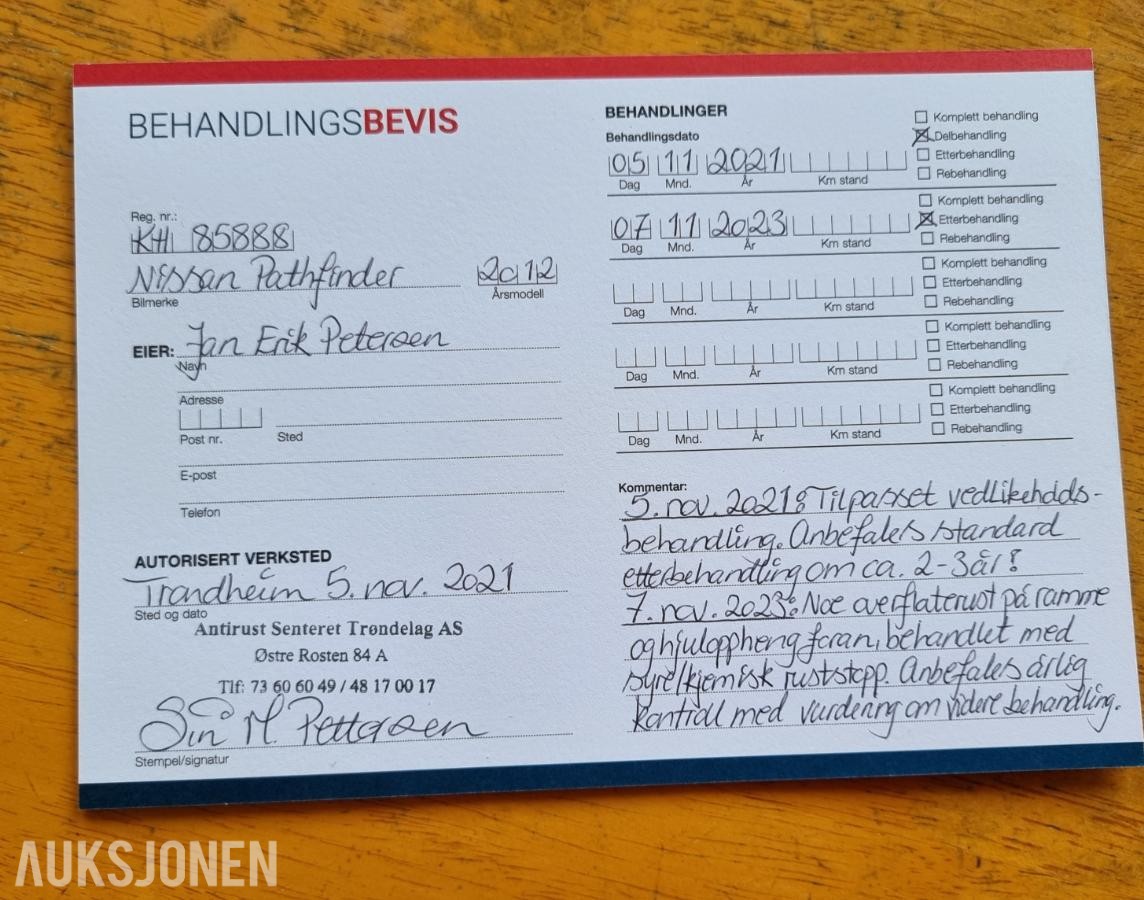 BEHANDLINGSBEVIS
Reg. nr.:
KH 85888
Nissan Pathfinder 2012
Bilmerke Årsmodell
EIER: Jan Erik Petersen
Navn
Adresse
Post nr. Sted
E-post
Telefon
AUTORISERT VERKSTED
Trondheim 5. nov. 2021
Sted og dato
Antirust Senteret Trøndelag AS
Østre Rosten 84 A
Tlf: 73 60 60 49 / 48 17 00 17
M. Pettersen
Stempel/signatur
BEHANDLINGER
Behandlingsdato
Komplett behandling
Delbehandling
Etterbehandling
Rebehandling
05 11 2021
Dag Mnd. År Km stand
Komplett behandling
Etterbehandling
Rebehandling
07 11 2023
Dag Mnd. År Km stand
Komplett behandling
Etterbehandling
Rebehandling
Dag Mnd. År Km stand
Komplett behandling
Etterbehandling
Rebehandling
Dag Mnd. År Km stand
Komplett behandling
Etterbehandling
Rebehandling
Dag Mnd. År Km stand
Kommentar:
5. nov. 2021: Tilpasset vedlikeholds-
behandling. Anbefales standard
etterbehandling om ca. 2-3 år!
7. nov. 2023: Noe overflaterust på ramme
og hjuloppheng foran, behandlet med
syre/kjemisk ruststopp. Anbefales årlig
kontroll med vurdering om videre behandling.
AUKSJONEN